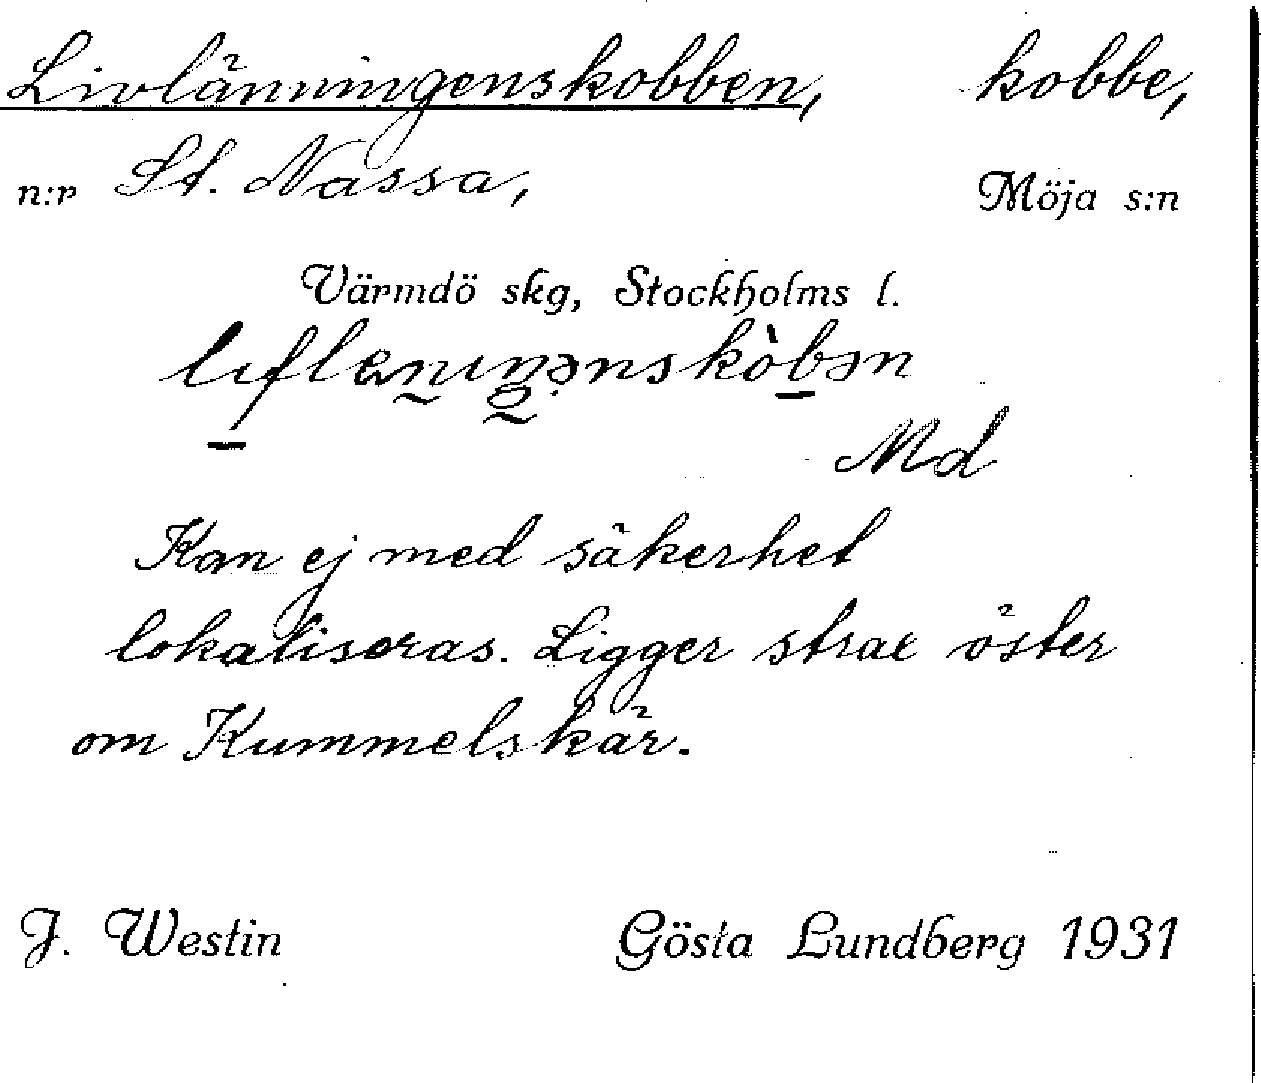 Livlänningenskobben, kobbe,
n:r St. Nassa, Möja s:n
Värmdö skg, Stockholms l.
Md
Kan ej med säkerhet
lokaliseras. Ligger strax öster
om Kummelskär.
J. Westin Gösta Lundberg 1931